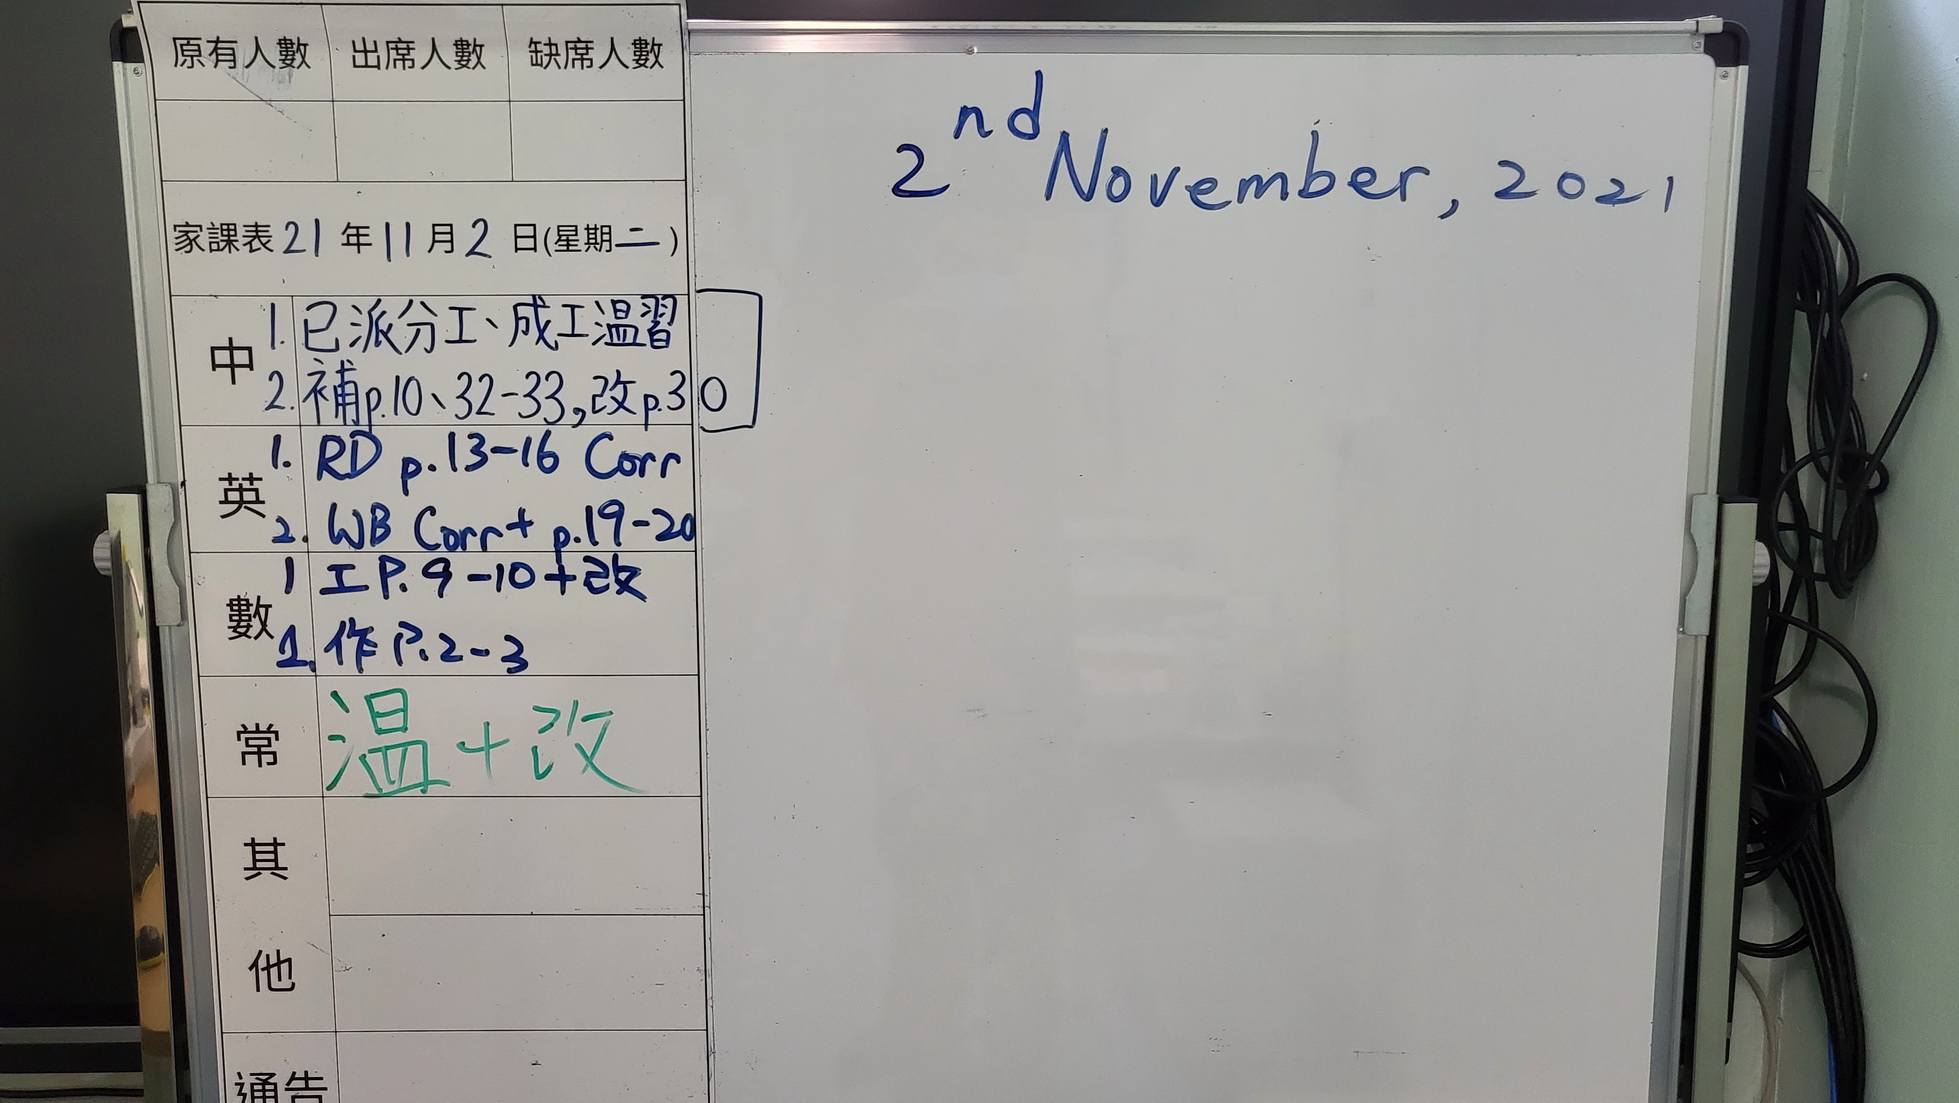 原有人數 出席人數 缺席人數
2nd November, 2021
家課表21年11月2日(星期二)
中
1. 已派分工、成工温習
2. 補p.10、32-33,改p.30
英
1. RD p.13-16 Corr
2. WB Corr+ p.19-20
數
1 工P.9-10+改
2. 作P.2-3
常 温+改
其
他
通告